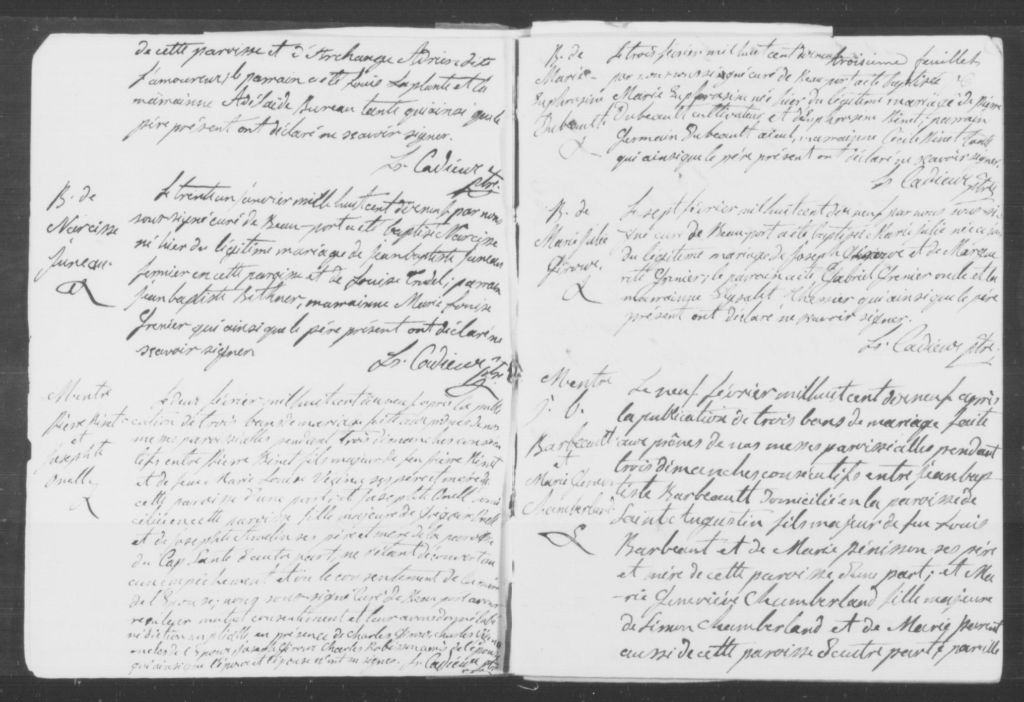 de cette paroisse et d'Archange
L'amoureux; le parrain a été Louis Laplante et la
marrainne Adélaide Bureau tante qui ainsi que le
père présent ont déclaré ne scavoir signer.
Ls. Cadieux ptre.
B. de
Narcisse
Juneau
Le trente un janvier mil huit cent dix neuf par nous
sous-signé curé de Beau-port a été baptisé Narcisse
né hier du légitime mariage de Jean baptiste Juneau
fermier en cette paroisse et de Louise Trudel; parrain
Jean baptiste marrainne Marie Louise
Grenier qui ainsi que le père présent ont déclaré ne
scavoir signer
Ls. Cadieux ptre.
M
pierre
et
Josephte
Le deux février mil huit cent dix neuf après la publi-
cation de trois bans de mariage faite aux prônes de nos
messes paroissialles pendant trois dimanches consecu-
tifs entre pierre fils majeur de feu pierre
et de feue Marie Louise ses père et mère de
cette paroisse d'une part; et Josephte domi-
ciliée en cette paroisse fille majeure de
et de Josephte ses père et mère de la paroisse
du Cap Santé d'autre part; ne s'étant découvert au-
cun empêchement et vu le consentement de la mère
de l'Epouse; nous sous-signé Curé de Beauport avons
reçu leur mutuel consentement et leur avons donné la bé-
nédiction nuptialle en présence de Charles Giroux, Charles
oncles de l'Epoux, Joseph Giroux Charles amis de l'épouse
qui ainsi que l'époux et l'épouse n'ont su signer. Ls. Cadieux ptre
troisieme feuillet
B. de
Marie
Euphrosine
Dubeault
Le trois février mil huit cent dix neuf
par nous sous-signé curé de Beauport a été baptisée
Marie Euphrosine née hier du légitime mariage de pierre
Dubeault cultivateur, et d'Euphrosine parrain
Germain Dubeault ayeul, marrainne Cécile tante
qui ainsi que le père présent ont déclaré ne scavoir signer.
Ls. Cadieux ptre.
B. de
Marie Julie
Giroux.
Le sept février mil huit cent dix neuf par nous sous-si-
gné curé de Beau-port a été baptisée Marie Julie née ce jour
du légitime mariage de Joseph Giroux et de Margue-
rite Grenier; le parrain a été Gabriel Grenier oncle et la
marrainne qui ainsi que le père
présent ont déclaré ne scavoir signer.
Ls. Cadieux ptre.
M
J. b.
Barbeault
et
Marie Genev
Chamberland
Le neuf février mil huit cent dix neuf après
la publication de trois bans de mariage faite
aux prônes de nos messes paroissialles pendant
trois dimanches consecutifs entre Jean bap-
tiste Barbeault domicilié en la paroisse de
Sainte Augustin fils majeur de feu Louis
Barbeaut et de Marie pénisson ses père
et mère de cette paroisse d'une part; et Ma-
rie Geneviève Chamberland fille majeure
de Simon Chamberland et de Marie parent
aussi de cette paroisse d'autre part; pareille